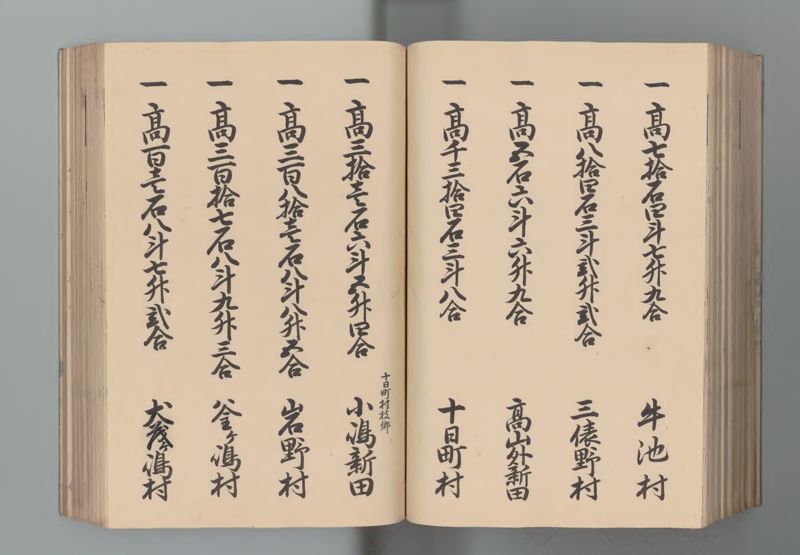 一 高七拾石四斗七升九合 牛池村
一 高八拾四石三斗弐升弐合 三俵野村
一 高五石六斗六升九合 高山外新田
一 高千三拾四石三斗八合 十日町村
十日町村枝郷
一 高三拾壱石六斗五升四合 小嶋新田
一 高三百八拾壱石八斗八升五合 岩野村
一 高三百拾七石八斗九升三合 釜ヶ嶋村
一 高百壱石八斗七升弐合 犬茂ヶ嶋村